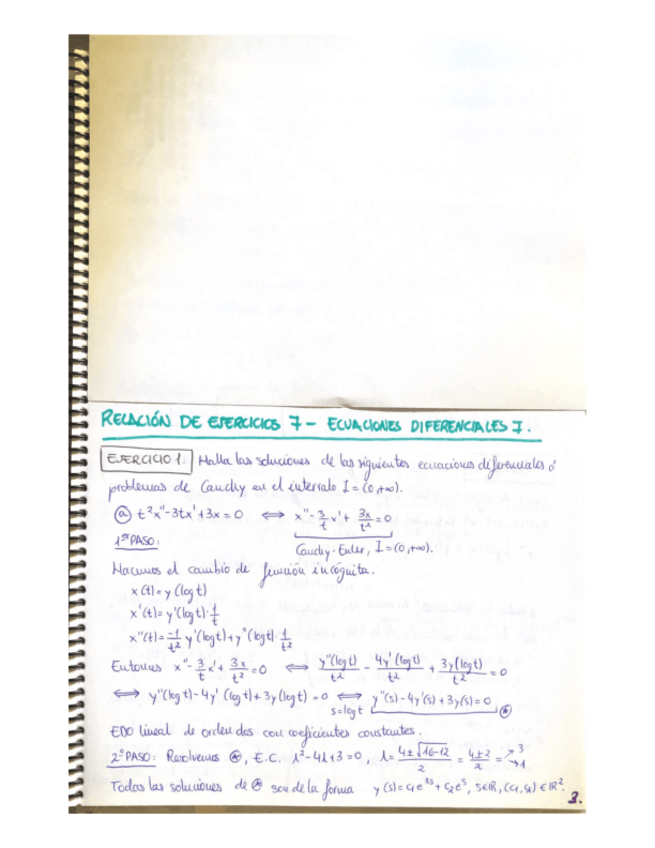 RELACIÓN DE EJERCICIOS 7 - ECUACIONES DIFERENCIALES I.
EJERCICIO 1: Halla las soluciones de las siguientes ecuaciones diferenciales ó
problemas de Cauchy en el intervalo I = (0,+∞).
ⓐ t²x''-3tx'+3x = 0 ⟺ x''- 3/t x' + 3x/t² = 0
1er PASO:
Cauchy-Euler, I = (0,+∞).
Hacemos el cambio de función incógnita.
x(t) = y(log t)
x'(t) = y'(log t)· 1/t
x''(t) = -1/t² y'(log t) + y''(log t) 1/t²
Entonces x''- 3/t x' + 3x/t² = 0 ⟺ y''(log t)/t² - 4y'(log t)/t² + 3y(log t)/t² = 0
⟺ y''(log t) - 4y'(log t) + 3y(log t) = 0 ⟺ y''(s) - 4y'(s) + 3y(s) = 0 ⊛
s = log t
EDO lineal de orden dos con coeficientes constantes.
2º PASO: Resolvemos ⊛, E.C. λ²-4λ+3 = 0, λ = 4±√16-12/2 = 4±2/2 = ↗3 ↘1
Todas las soluciones de ⊛ son de la forma y(s) = c₁e³ˢ + c₂eˢ, s∈ℝ, (c₁,c₂) ∈ ℝ².
3.